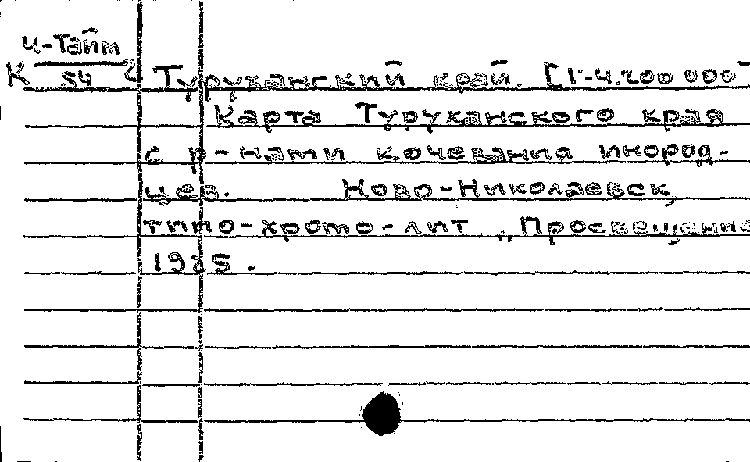 Ч-Тайм
К 54
Туруханский край. [1:4.200 000]
Карта Туруханского края
с р-нами кочевания инород-
цев. Ново-Николаевск,
типо-хромо-лит. „Просвещение